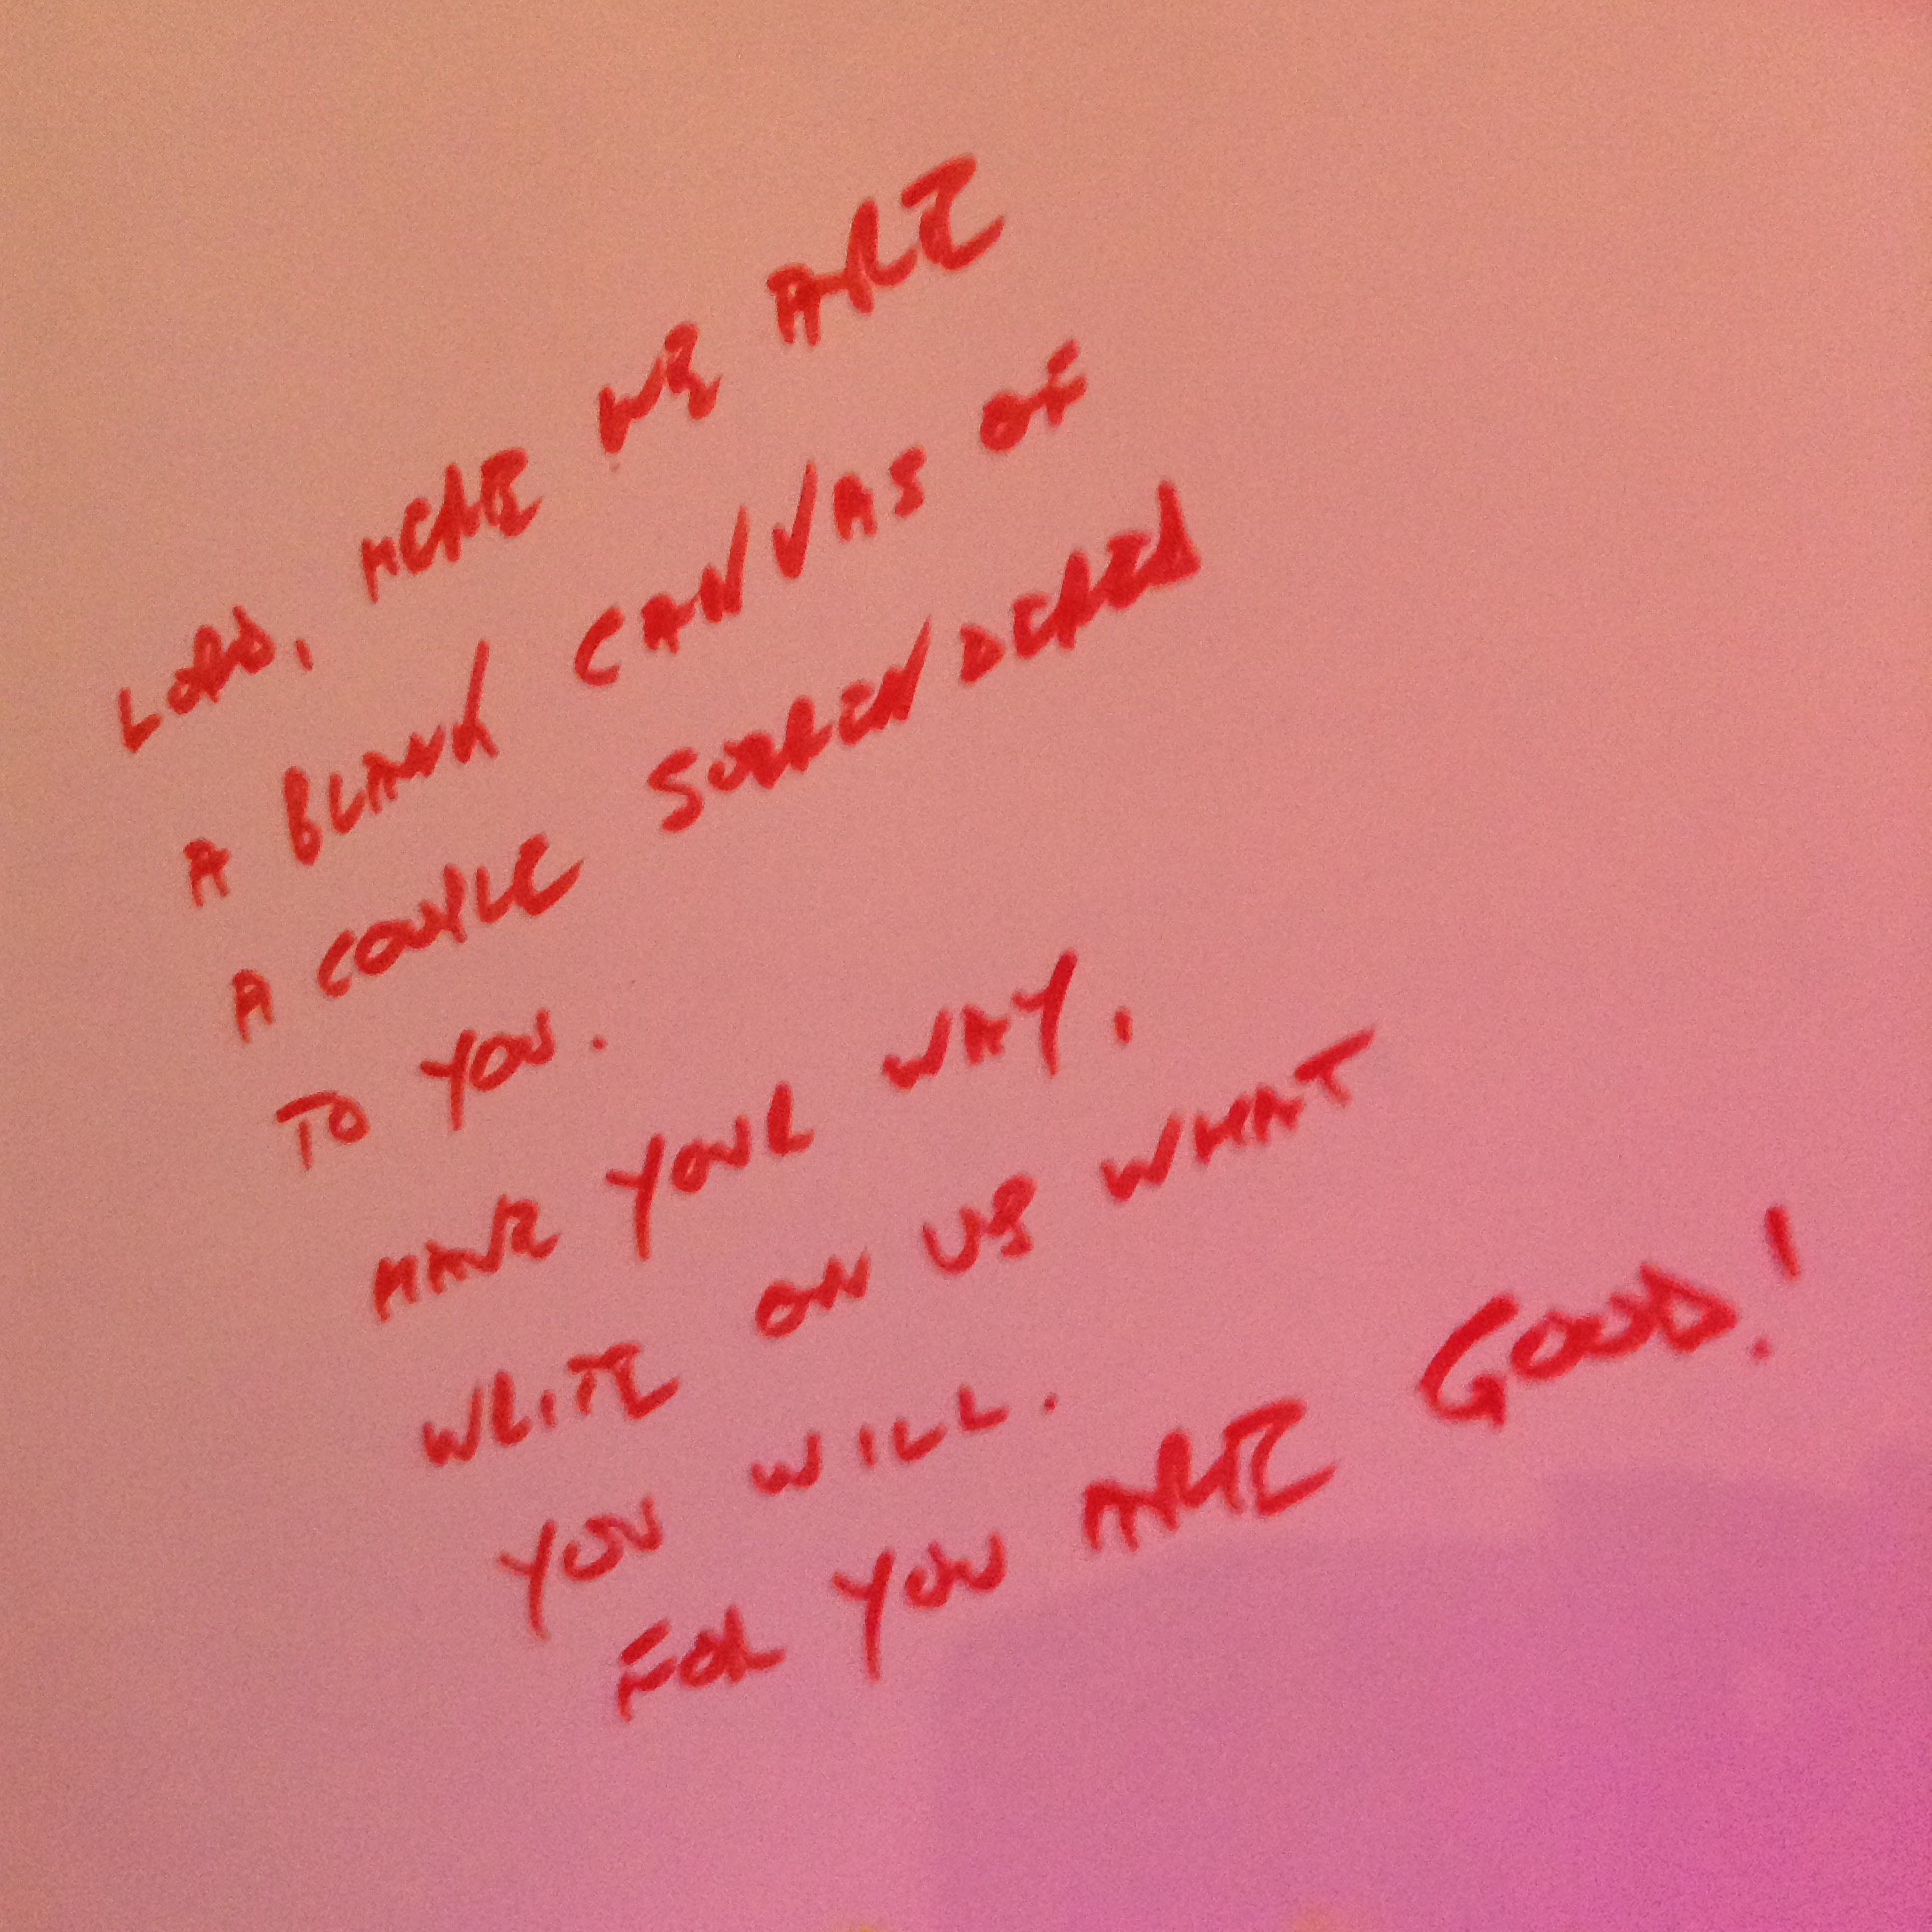 LORD, HERE WE ARE
A BLANK CANVAS OF
A COUPLE SURRENDERED
TO YOU.
HAVE YOUR WAY,
WRITE ON US WHAT
YOU WILL.
FOR YOU ARE GOOD!